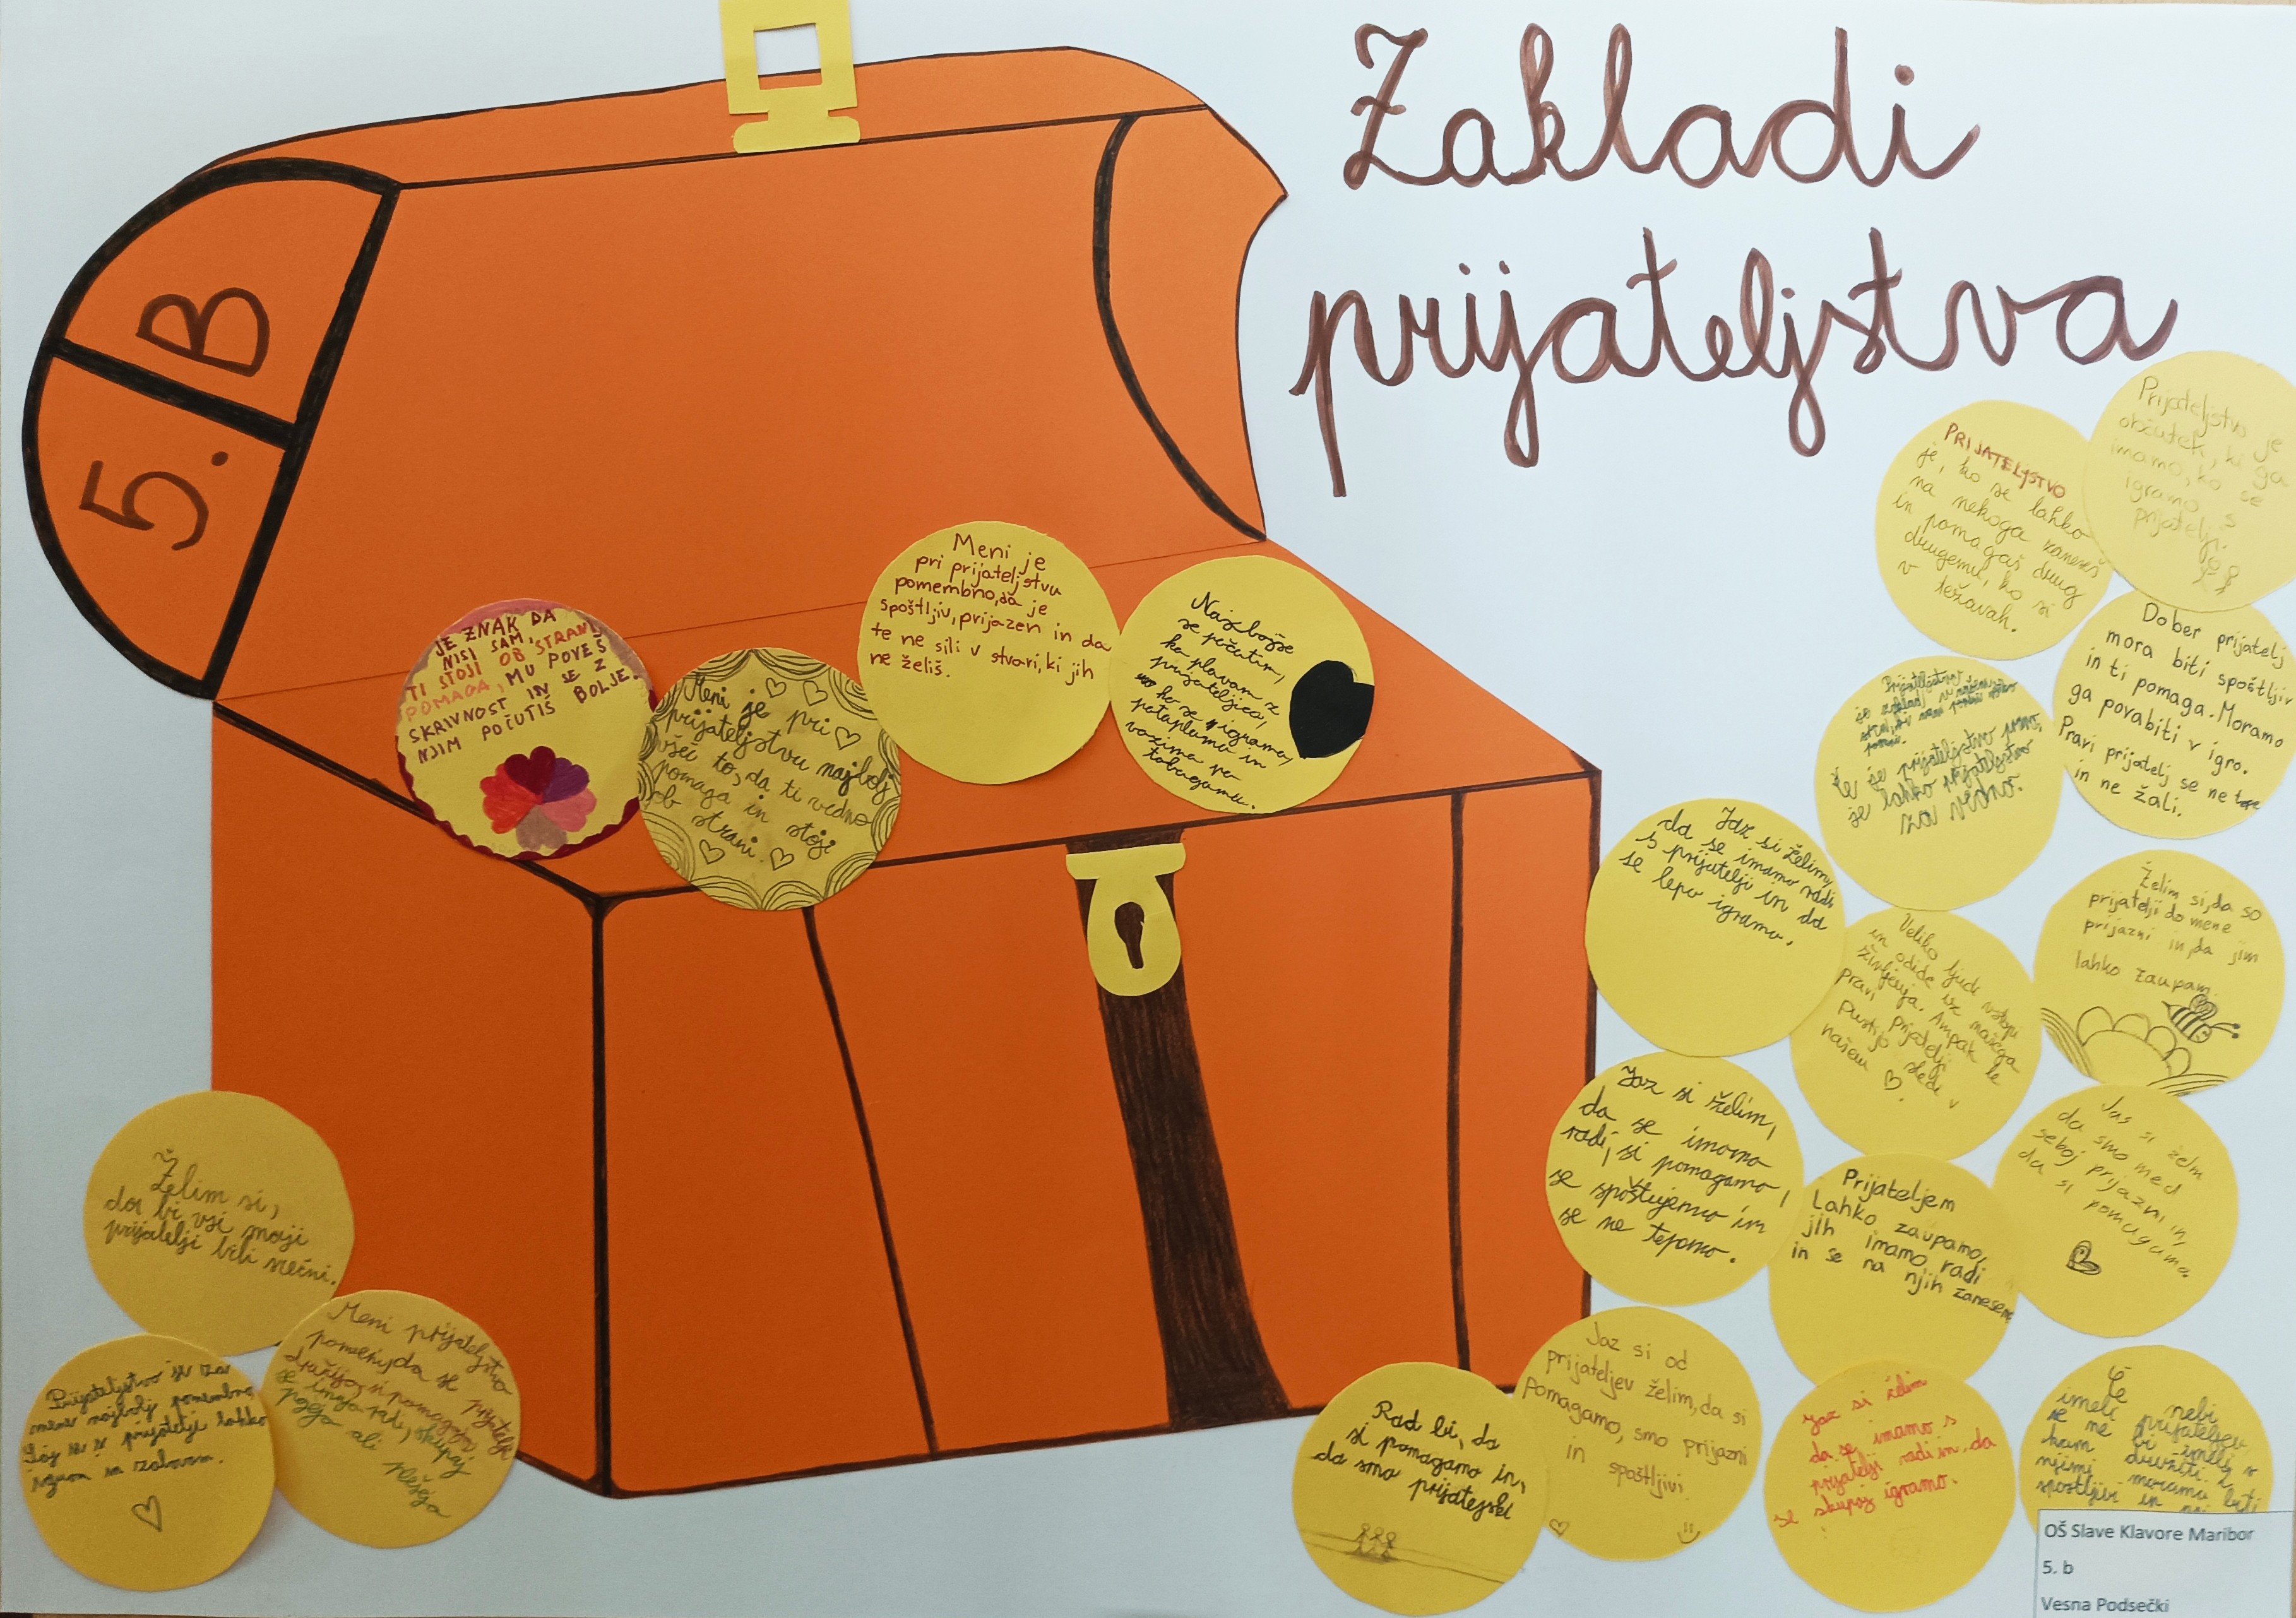 Zakladi
prijateljstva
5. B
JE ZNAK DA
NISI SAM,
TI STOJI OB STRANI
POMAGA, MU POVEŠ
SKRIVNOST IN SE Z
NJIM POČUTIŠ BOLJE.
Meni je pri
prijateljstvu najbolj
všeč to, da ti vedno
pomaga in stoji
ob strani.
Meni je
pri prijateljstvu
pomembno, da je
spoštljiv, prijazen in da
te ne sili v stvari, ki jih
ne želiš.
Najboljše
se počutim,
ko plavam z
prijateljico,
ko se igramo,
potapljamo in
vozimo po
toboganu.
PRIJATELJSTVO
je, ko se lahko
na nekoga zaneseš
in pomagaš drug
drugemu, ko si
v težavah.
Prijateljstvo je
občutek, ki ga
imamo, ko se
igramo s
prijatelji.
Dober prijatelj
mora biti spoštljiv
in ti pomaga. Moramo
ga povabiti v igro.
Pravi prijatelj se ne
in ne žali.
Prijateljstvo
je zaklad v
Če je prijateljstvo pravo,
je lahko prijateljstvo
za vedno.
Jaz si želim,
da se imamo radi
s prijatelji in da
se lepo igramo.
Veliko ljudi vstopi
in odide iz našega
življenja. Ampak le
pravi prijatelji
pustijo sledi v
našem
Želim si, da so
prijatelji do mene
prijazni in da jim
lahko zaupam.
Jaz si želim,
da se imamo
radi, si pomagamo,
se spoštujemo in
se ne tepemo.
Jas si želm
da smo med
seboj prijazni in,
da si pomagamo.
Prijateljem
Lahko zaupamo,
jih imamo radi
in se na njih zanesemo
Želim si,
da bi vsi moji
prijatelji bili srečni.
Meni prijateljstvo
pomeni, da se prijatelji
družijo, si pomagajo,
se imajo radi, skupaj
pojejo ali
plešejo
Prijateljstvo je za
mene najbolj pomembno
saj se s prijatelji lahko
igram in zabavam.
Rad bi, da
si pomagamo in,
da smo prijateljski
Jaz si od
prijateljev želim, da si
pomagamo, smo prijazni
in spoštljivi.
Jaz si želim
da se imamo s
prijatelji radi in da
se skupaj igramo.
Če nebi
imeli prijateljev
se ne bi imeli s
kom družiti. Z
njimi moramo biti
spoštljivi in
OŠ Slave Klavore Maribor
5. b
Vesna Podsečki